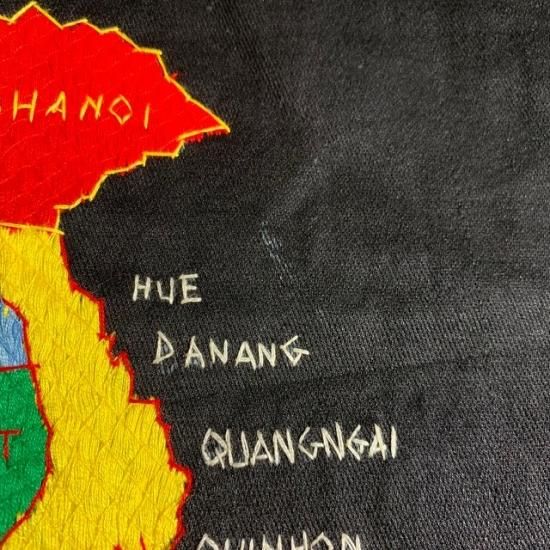 HANOI
HUE
DANANG
QUANGNGAI
QUINHON
T